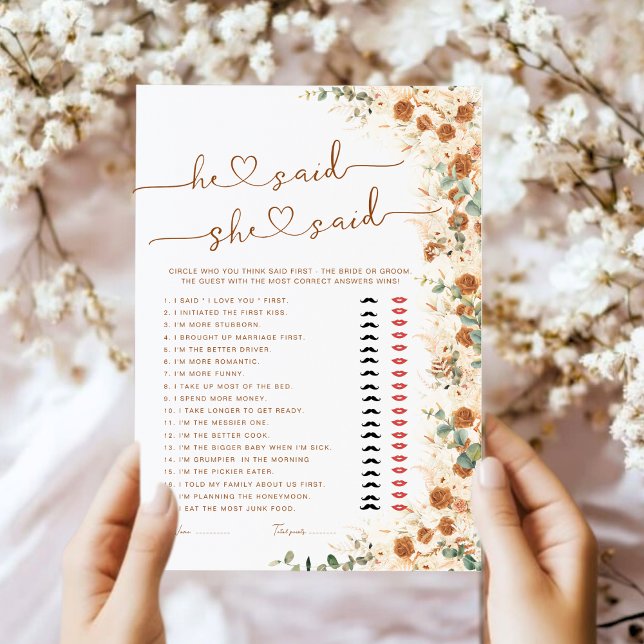 he said
she said
CIRCLE WHO YOU THINK SAID FIRST - THE BRIDE OR GROOM.
THE GUEST WITH THE MOST CORRECT ANSWERS WINS!
1. I SAID " I LOVE YOU " FIRST.
2. I INITIATED THE FIRST KISS.
3. I'M MORE STUBBORN.
4. I BROUGHT UP MARRIAGE FIRST.
5. I'M THE BETTER DRIVER.
6. I'M MORE ROMANTIC.
7. I'M MORE FUNNY.
8. I TAKE UP MOST OF THE BED.
9. I SPEND MORE MONEY.
10. I TAKE LONGER TO GET READY.
11. I'M THE MESSIER ONE.
12. I'M THE BETTER COOK.
13. I'M THE BIGGER BABY WHEN I'M SICK.
14. I'M GRUMPIER IN THE MORNING
15. I'M THE PICKIER EATER.
16. I TOLD MY FAMILY ABOUT US FIRST.
I'M PLANNING THE HONEYMOON.
I EAT THE MOST JUNK FOOD.
Name: __________ Total points: __________